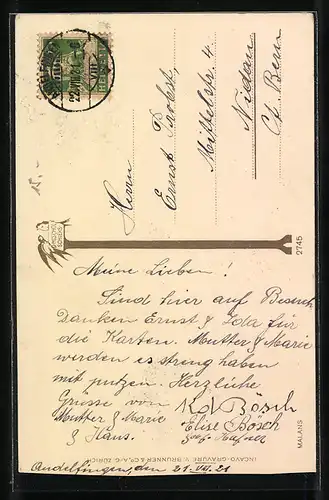 Herrn
Ernst Probst,
Mittelstr. 4.
Nidau
Ct. Bern
15.-
2745
MALANS
Meine Lieben!
Sind hier auf Besuch
Danken Ernst & Ida für
die Karten. Mutter & Marie
werden es streng haben
mit putzen. Herzliche
Grüsse von
Mutter & Marie
& Hans.
Kd Bösch
Elise Bösch
Andelfingen, den 21. VII. 21
INCAVO-GRAVURE V. BRUNNER & CIE, A.-G. ZÜRICH